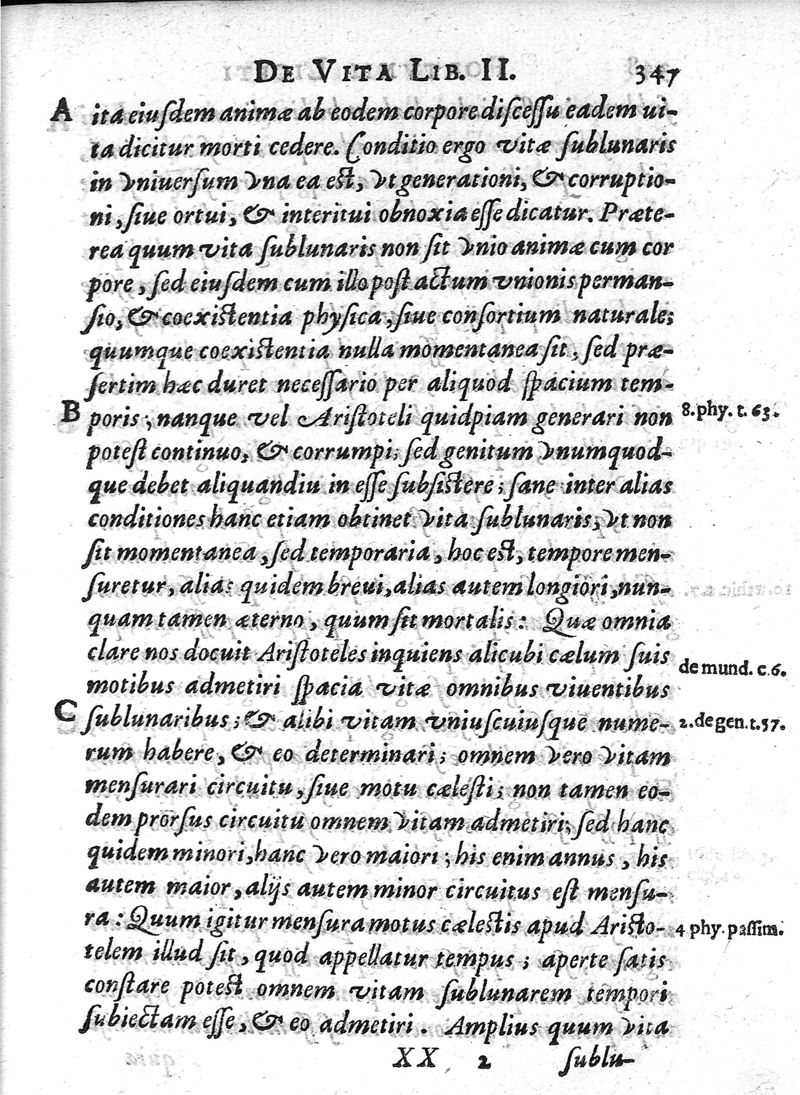 DE VITA LIB. II. 347
A ita eiuſdem animæ ab eodem corpore diſceſſu eadem ui-
ta dicitur morti cedere. Conditio ergo vitæ ſublunaris
in vniuerſum vna ea eſt, vt generationi, & corruptio-
ni, ſiue ortui, & interitui obnoxia eſſe dicatur. Præte-
rea quum vita ſublunaris non ſit vnio animæ cum cor
pore, ſed eiuſdem cum illo poſt actum vnionis perman-
ſio, & coexiſtentia phyſica, ſiue conſortium naturale;
quumque coexiſtentia nulla momentanea ſit, ſed præ-
ſertim hæc duret neceſſario per aliquod ſpacium tem-
B poris; nanque vel Ariſtoteli quidpiam generari non 8. phy. t. 63.
poteſt continuo, & corrumpi; ſed genitum vnumquod-
que debet aliquandiu in eſſe ſubſiſtere; ſane inter alias
conditiones hanc etiam obtinet vita ſublunaris, vt non
ſit momentanea, ſed temporaria, hoc eſt, tempore men-
ſuretur, alias quidem breui, alias autem longiori, nun-
quam tamen æterno, quum ſit mortalis: Quæ omnia
clare nos docuit Ariſtoteles inquiens alicubi cælum ſuis de mund. c. 6.
motibus admetiri ſpacia vitæ omnibus viuentibus
C ſublunaribus; & alibi vitam vniuſcuiuſque nume- 2. de gen. t. 57.
rum habere, & eo determinari; omnem vero vitam
menſurari circuitu, ſiue motu cæleſti; non tamen eo-
dem prorſus circuitu omnem vitam admetiri; ſed hanc
quidem minori, hanc vero maiori; his enim annus, his
autem maior, alijs autem minor circuitus eſt menſu-
ra: Quum igitur menſura motus cæleſtis apud Ariſto- 4 phy. paſſim.
telem illud ſit, quod appellatur tempus; aperte ſatis
conſtare poteſt omnem vitam ſublunarem tempori
ſubiectam eſſe, & eo admetiri. Amplius quum vita
XX 2 ſublu-